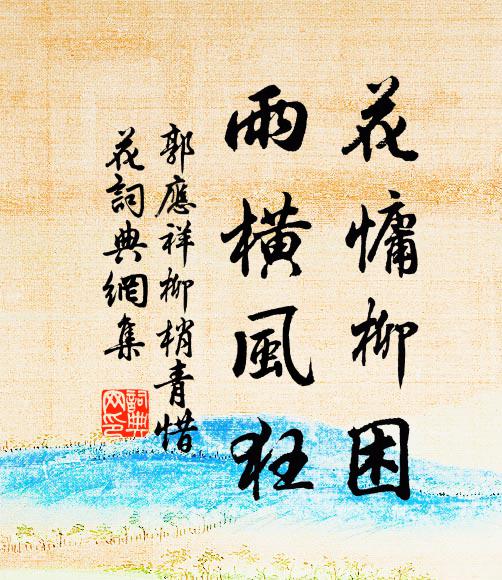 花慵柳困
雨橫風狂
郭應祥柳梢青惜
花詞典網集
詞典
网印